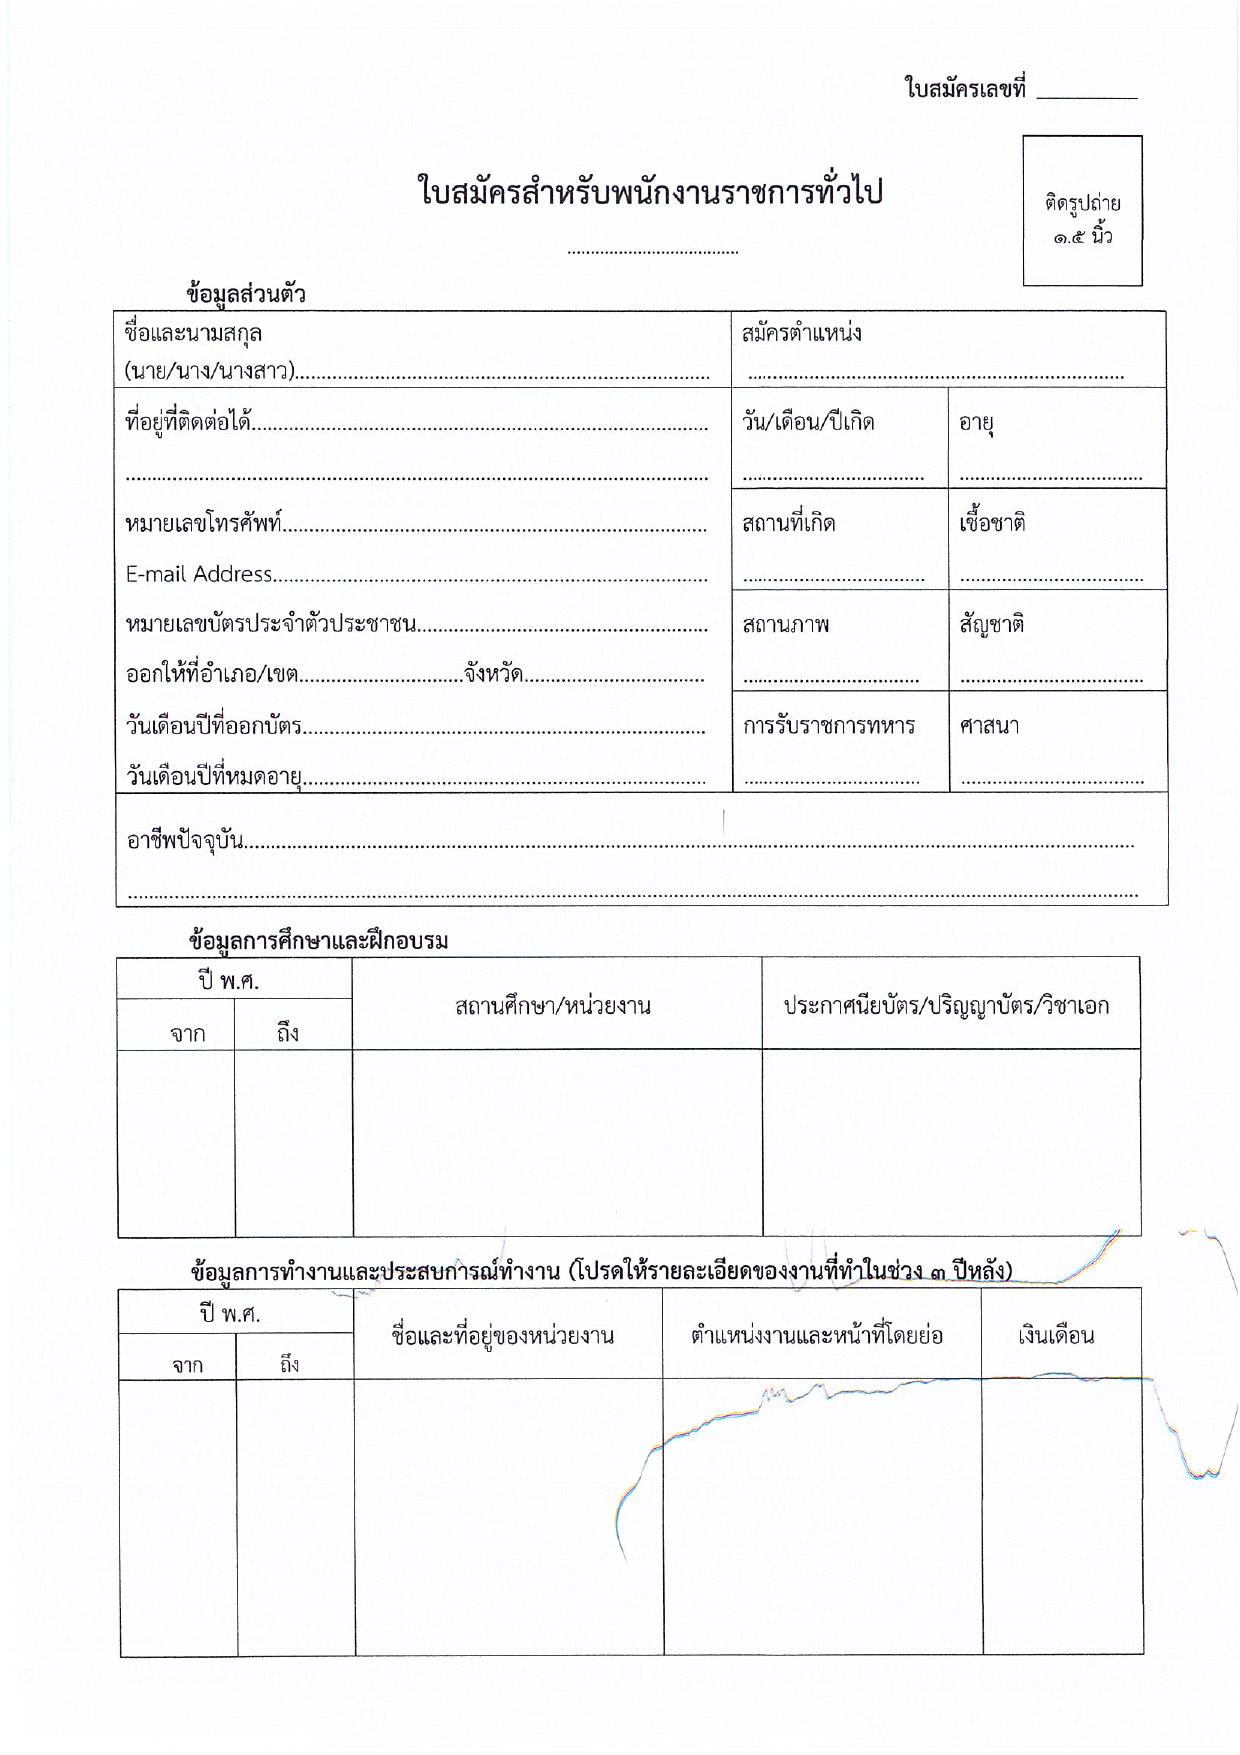 ใบสมัครเลขที่ ________
ใบสมัครสำหรับพนักงานราชการทั่วไป
....................................
ติดรูปถ่าย
๑.๕ นิ้ว
ข้อมูลส่วนตัว
ชื่อและนามสกุล
(นาย/นาง/นางสาว)....................
สมัครตำแหน่ง
....................
ที่อยู่ที่ติดต่อได้....................
....................
วัน/เดือน/ปีเกิด
....................
อายุ
....................
หมายเลขโทรศัพท์....................
E-mail Address....................
สถานที่เกิด
....................
เชื้อชาติ
....................
หมายเลขบัตรประจำตัวประชาชน....................
ออกให้ที่อำเภอ/เขต....................จังหวัด....................
สถานภาพ
....................
สัญชาติ
....................
วันเดือนปีที่ออกบัตร....................
วันเดือนปีที่หมดอายุ....................
การรับราชการทหาร
....................
ศาสนา
....................
อาชีพปัจจุบัน....................
....................
ข้อมูลการศึกษาและฝึกอบรม
ปี พ.ศ.
จาก ถึง
สถานศึกษา/หน่วยงาน
ประกาศนียบัตร/ปริญญาบัตร/วิชาเอก
ข้อมูลการทำงานและประสบการณ์ทำงาน (โปรดให้รายละเอียดของงานที่ทำในช่วง ๓ ปีหลัง)
ปี พ.ศ.
จาก ถึง
ชื่อและที่อยู่ของหน่วยงาน
ตำแหน่งงานและหน้าที่โดยย่อ
เงินเดือน